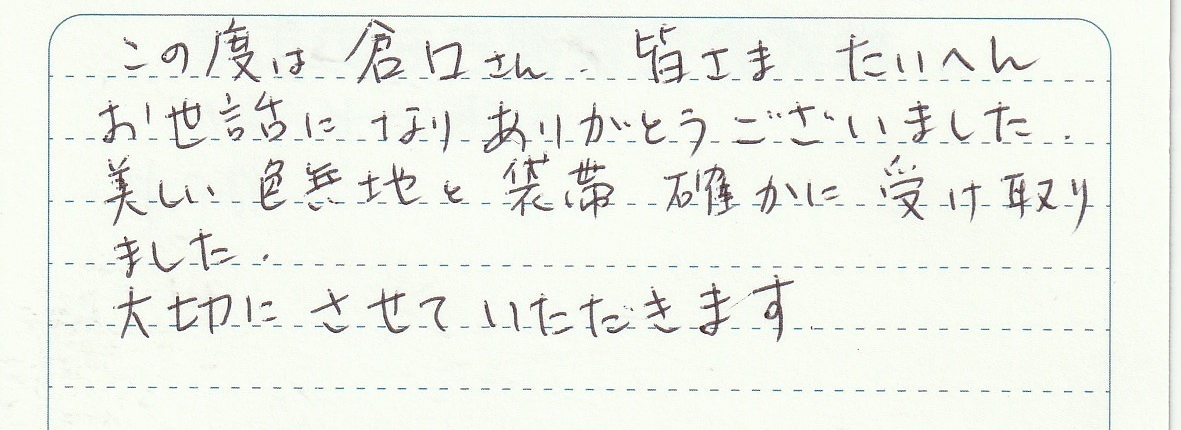 この度は倉口さん. 皆さま たいへん
お世話に なり ありがとうございました.
美しい 色無地と 袋帯 確かに 受け取り
ました.
大切に させて いただきます.